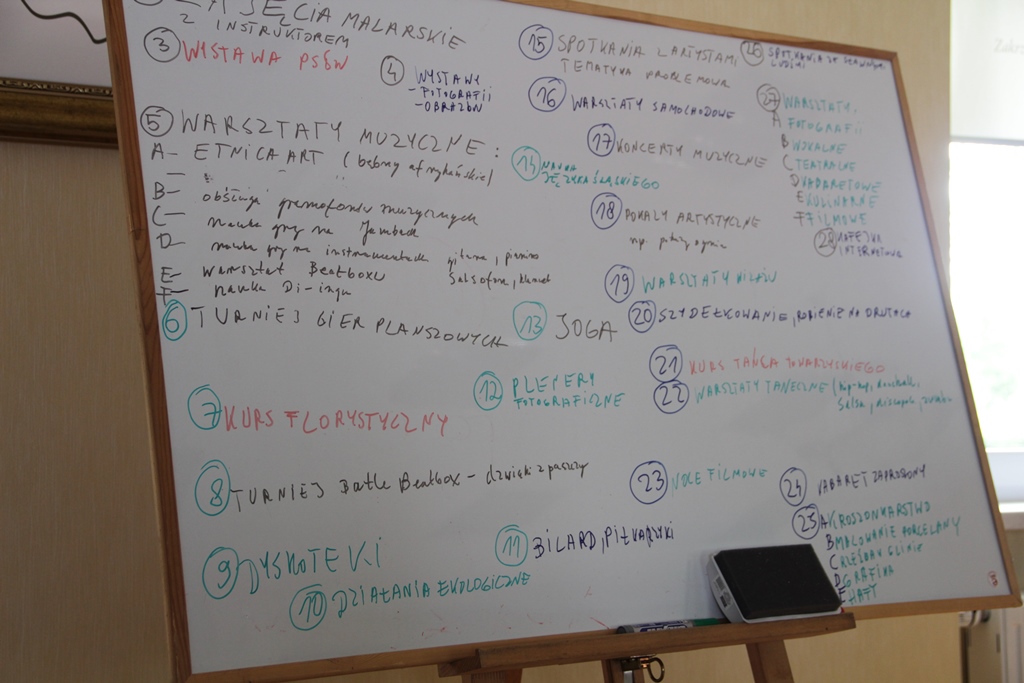 ZAJĘCIA MALARSKIE
Z INSTRUKTOREM
3 WYSTAWA PSÓW
4 WYSTAWY
- FOTOGRAFII
- OBRAZÓW
5 WARSZTATY MUZYCZNE:
A- ETNICART (bębny afrykańskie)
B- obsługa gramofonów muzycznych
C- nauka gry na Jambach
D- nauka gry na instrumentach gitara, pianino
salsofon, klarnet
E- warsztat Beatboxu
F- nauka Di-ingu
6 TURNIEJ GIER PLANSZOWYCH
7 KURS FLORYSTYCZNY
8 TURNIEJ Batle Beatbox - dźwięki z paszczy
9 DYSKOTEKI
10 DZIAŁANIA EKOLOGICZNE
11 BILARD, PIŁKARZYKI
12 PLENERY
FOTOGRAFICZNE
13 JOGA
14 NAUKA
JĘZYKA ŚLĄSKIEGO
15 SPOTKANIA Z ARTYSTAMI
TEMATYKA PROBLEMOWA
16 WARSZTATY SAMOCHODOWE
17 KONCERTY MUZYCZNE
18 POKAZY ARTYSTYCZNE
np. pokazy ognia
19 WARSZTATY
20 SZYDEŁKOWANIE, ROBIENIE NA DRUTACH
21 KURS TAŃCA TOWARZYSKIEGO
22 WARSZTATY TANECZNE (hip-hop, dancehall,
salsa, discopolo, zumba
23 NOCE FILMOWE
24 KABARET ZAPROSZONY
25 A KROSZONKARSTWO
B MALOWANIE PORCELANY
C RZEŹBA W GLINIE
D GRAFIKA
E HAFT
26 SPOTKANIA ZE SŁAWNYMI
LUDŹMI
27 WARSZTATY:
A FOTOGRAFII
B WOKALNE
C TEATRALNE
D KABARETOWE
E KULINARNE
F FILMOWE
28 KAFEJKA
INTERNETOWA